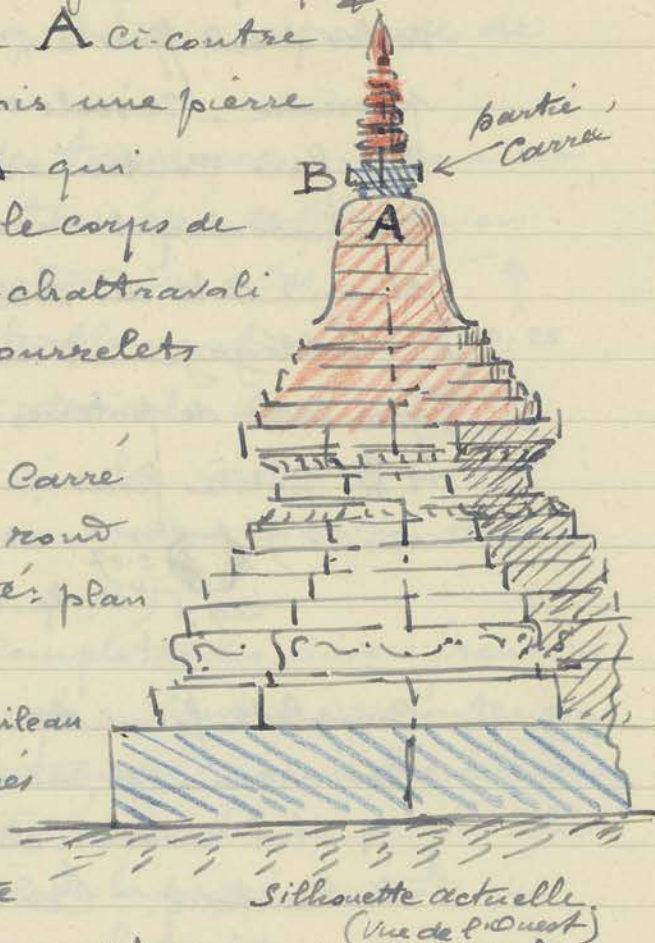 A ci-contre
is une pierre
qui
le corps de
chattravali
ourrelets
Carré
rond
plan
ileau
és
partie
Carrée
B
A
Silhouette actuelle.
(Vue de l'Ouest)